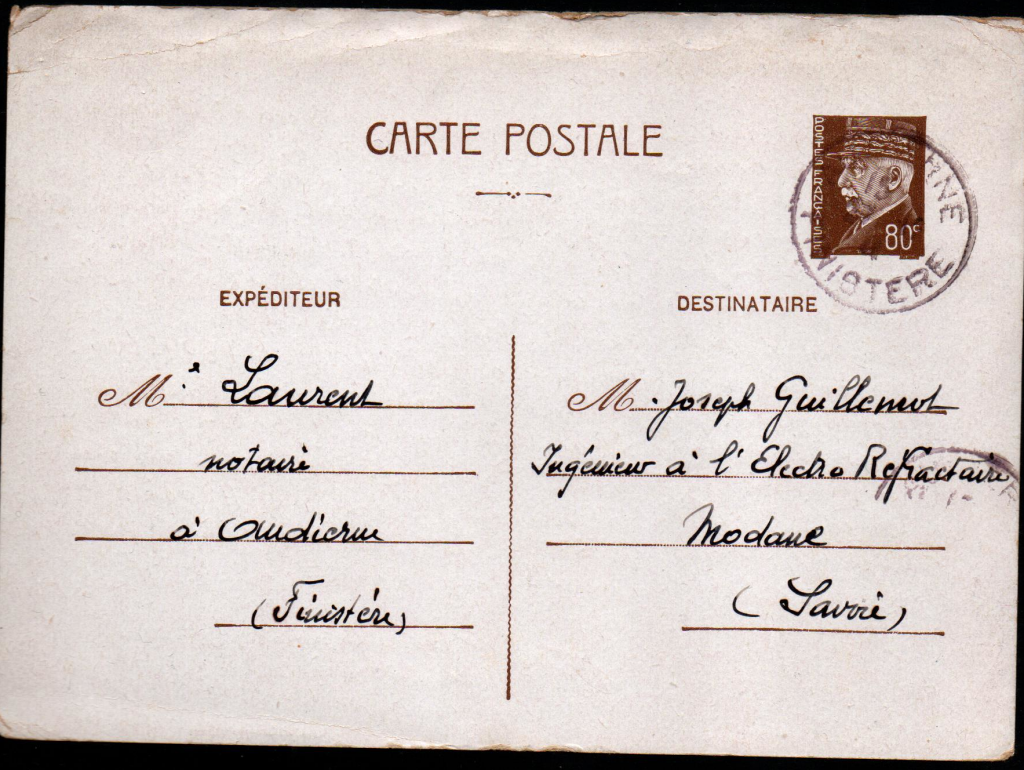 CARTE POSTALE
POSTES FRANÇAISES
80c
FINISTERE
EXPÉDITEUR
Me Laurent
notaire
à Audierne
(Finistère)
DESTINATAIRE
M. Joseph Guillemot
Ingénieur à l'Electro Refractaire
Modane
(Savoie)